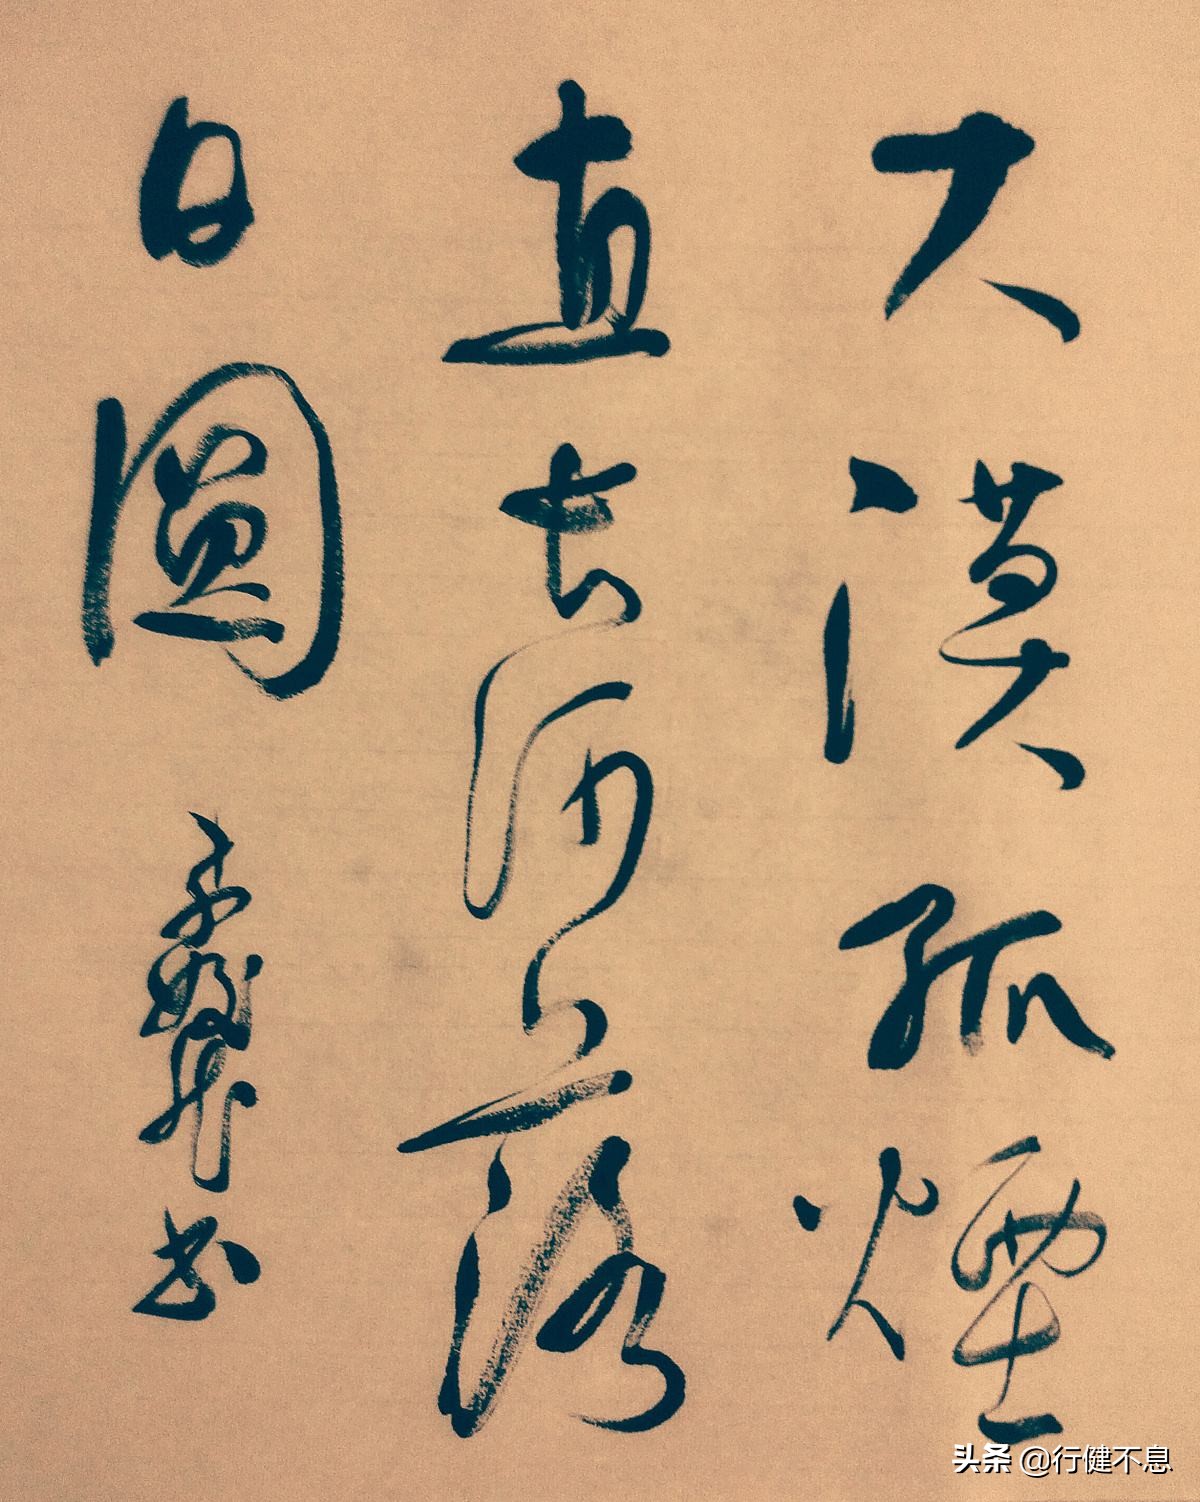 大漠孤煙
直长河落
日圓
书
头条 @行健不息